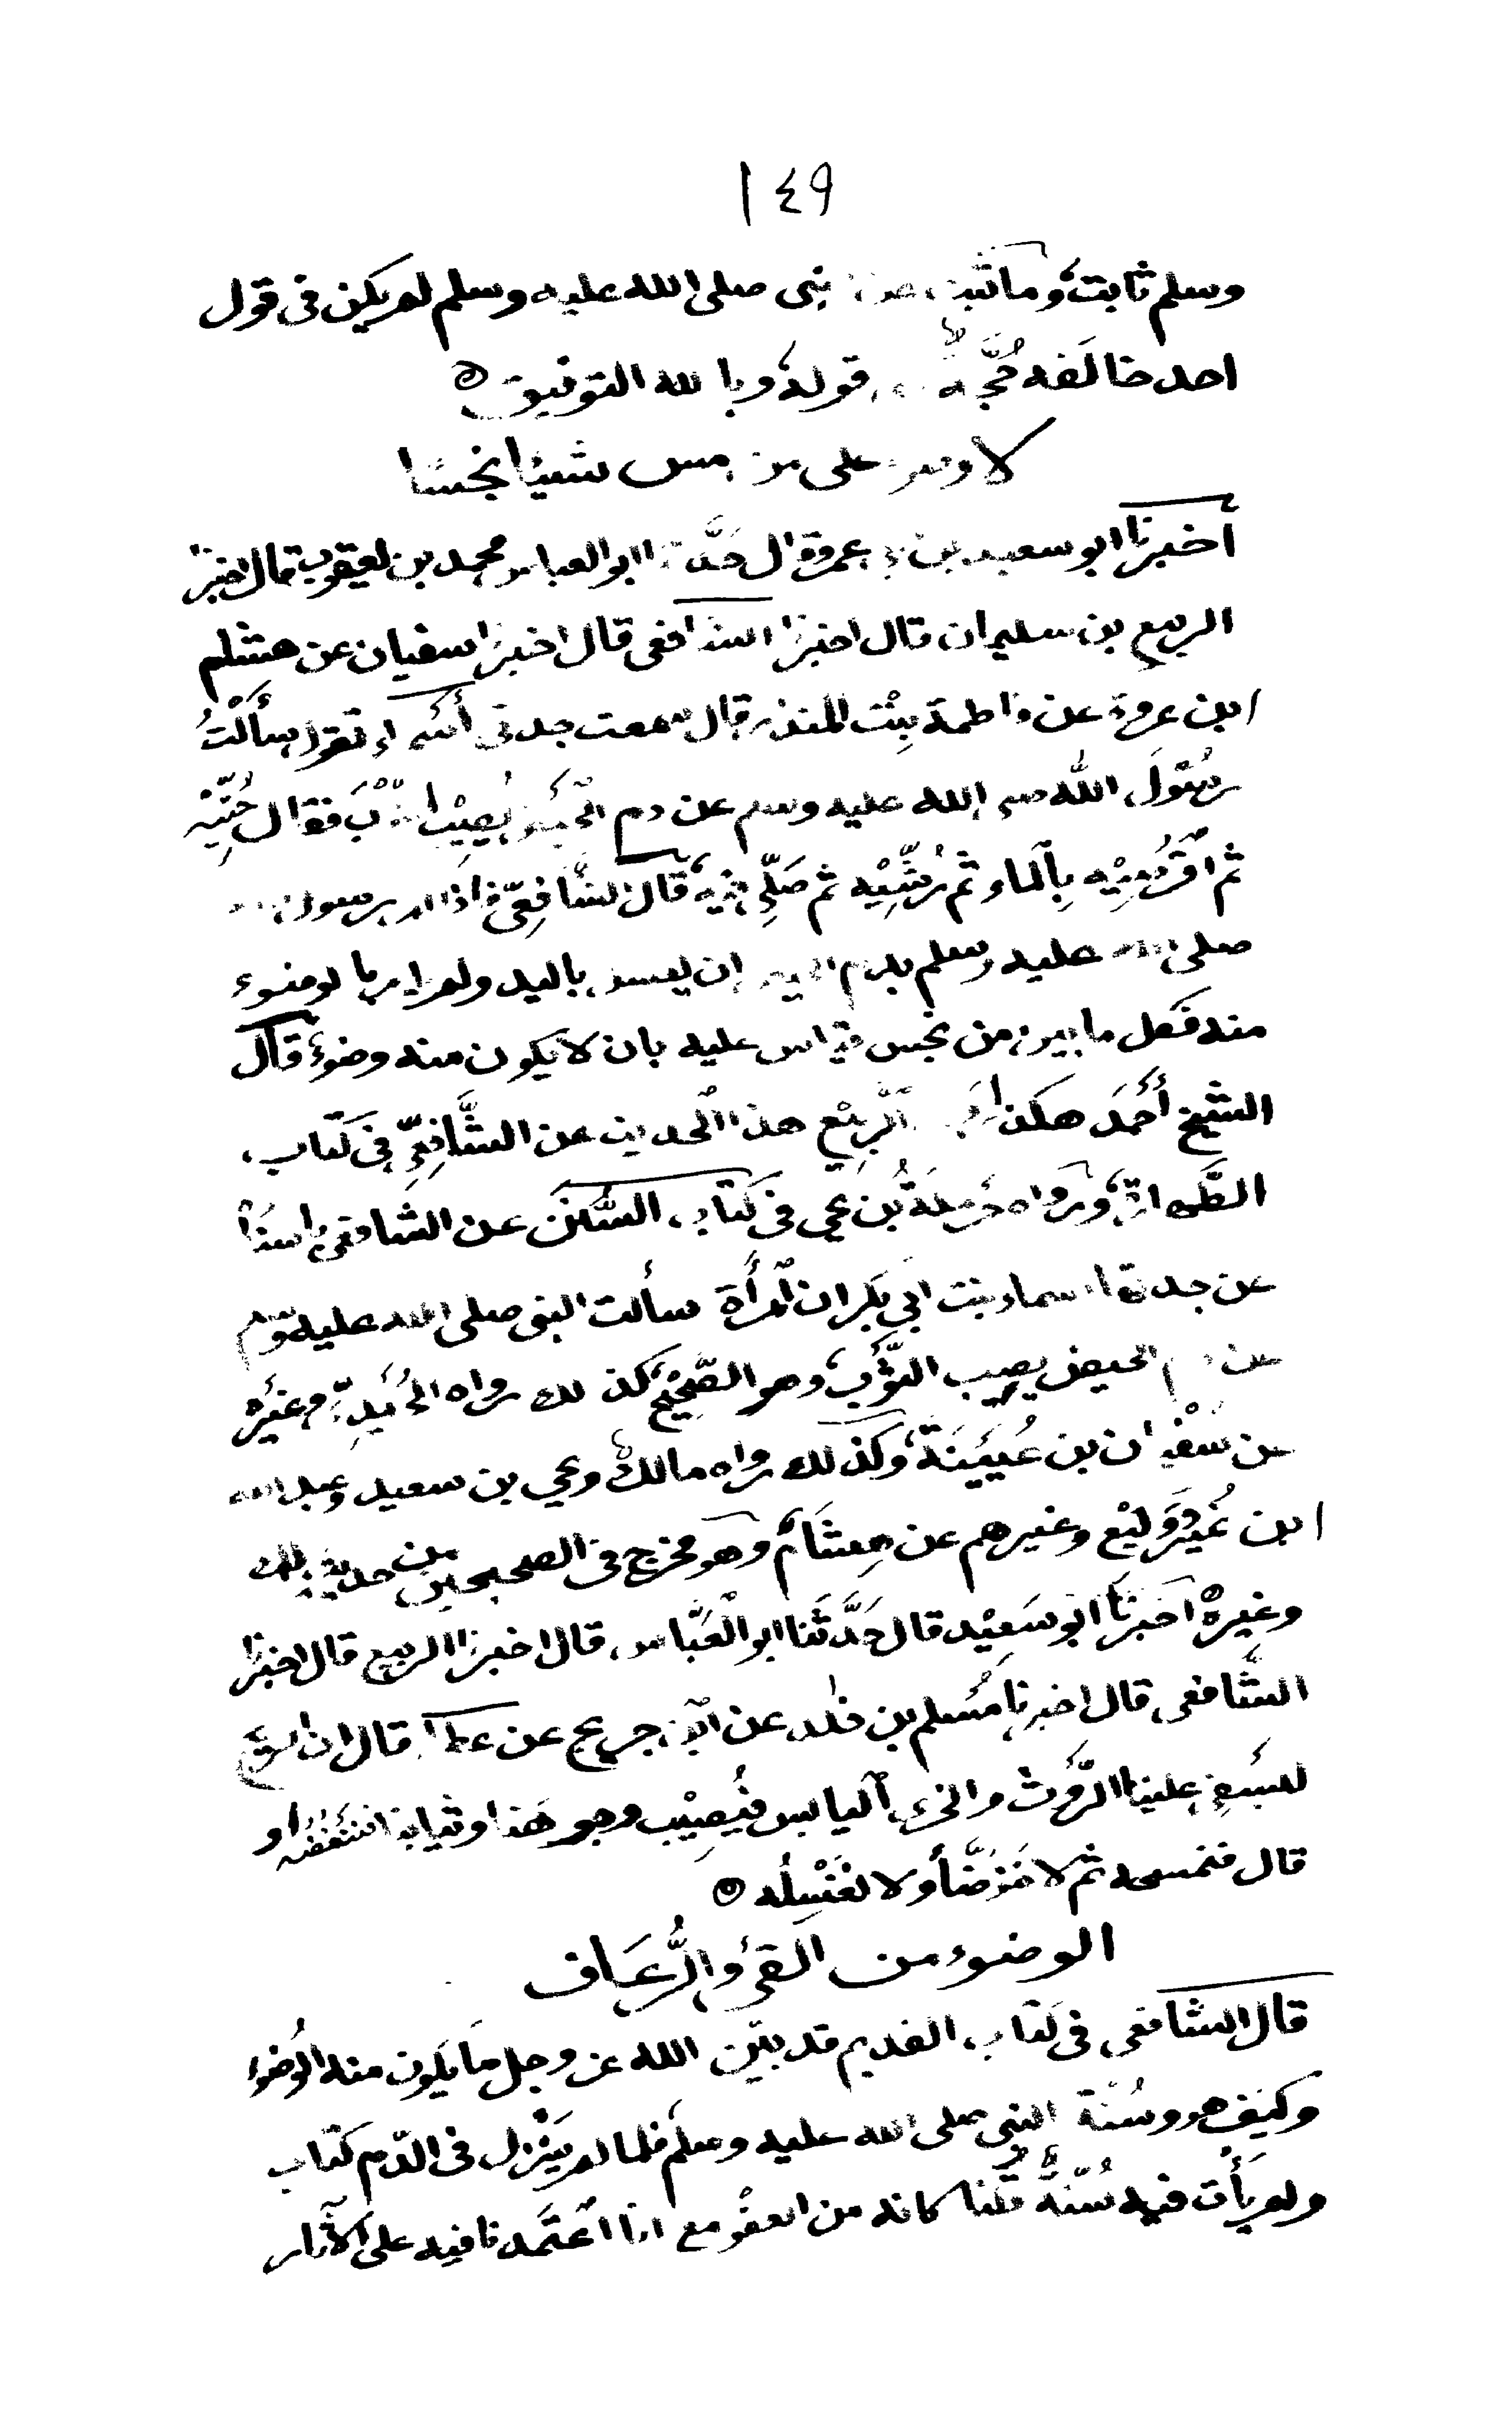 ١٤٩
وسلم ثابت وما ثبت عن النبي صلى الله عليه وسلم لم يكن في قول
احد خالَفه حُجَّة قوله وبالله التوفيق ه
لا وضوء على من مس شيئا نجسًا
أخبرنا ابو سعيد بن ابي عمرو قال حَدَّثنا ابو العباس محمد بن يعقوب قال اخبرنا
الربيع بن سليمان قال اخبرنا الشافعي قال اخبرنا سفيان عن هشام
ابن عروة عن فاطمة بِنْت المنذر قال سمعت جدتي أسماء تقول سأَلْتُ
رسُوْلَ الله صلى الله عليه وسلم عن دم الْحَيْضَة يُصِيْبُ الثَّوْبَ فقال حُتِّيْهِ
ثم اقْرُصِيْه بِالْماء ثم رُشِّيْه ثم صَلِّي فِيْه قال الشَّافِعِيّ فاذا امر رسول الله
صلى الله عليه وسلم بدم الحيض ان يغسل باليد ولم يامر بالوضوء
منه فكل ما من نجس قياس عليه بان لا يكون منه وضوء قال
الشيخ أَحْمَد هكذا الرَّبِيْع هذا الْحديث عن الشَّافِعِيِّ في كتاب
الطَّهارة ورواه حَرْمَلَةُ بْن يحيى في كتاب السُّنَن عن الشافعي باسناده
عن جدتها اسماء بنت ابي بَكر ان امْرأَة سألت النبي صلى الله عليه وسلم
عن دم الحيض يصيب الثَّوْب وهو الصَّحِيْح كذلك رواه الْحُمَيْدِيّ وغيْره
عن سُفْيان بن عُيَيْنَةَ وكذلك رواه مالك ويحيى بن سعيد وعبد الله
ابن نُمَيْر ووَكِيْع وغيرهم عن هِشَام وهو مخرج في الصحيحين من حديث مالك
وغيره أَخبرنَا ابُو سَعِيْد قال حَدَّثَنا ابو الْعَبَّاس قال اخبرنا الربيع قال اخبرنا
الشَّافعي قال اخبرنا مُسْلم بن خٰلد عن ابْن جريج عن عطاء قال ان الريح
لتسْفِي علينا الرَّوْث والخرء الْيابس فيُصِيْب وجوهَنا وثيابنا فننفُضُه او
قال فنمسحه ثم لا نتوضَّأ ولا نغْسِلُه ه
الوضوء من القيْء والرُّعَاف
قال الشافعي في كتاب القديم قد بيَّن الله عز وجل ما يكون منه الوُضوء
وكيْف هو وسُنَّة النبي صلى الله عليه وسلم فلما لم يَنْزِل في الدّم كتاب
ولم يَأْت فيه سُنّةٌ قُلنا كانه من العفْو مع انا اعْتَمَدنا فيه على الآثار